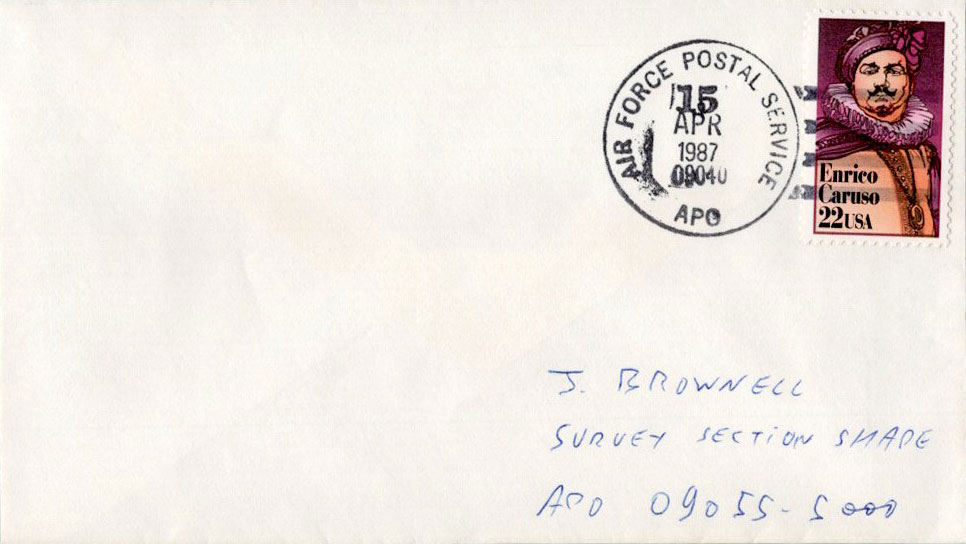 AIR FORCE POSTAL SERVICE
15
APR
1987
09040
APO
Enrico
Caruso
22USA
J. BROWNELL
SURVEY SECTION SHAPE
APO 09055-5000